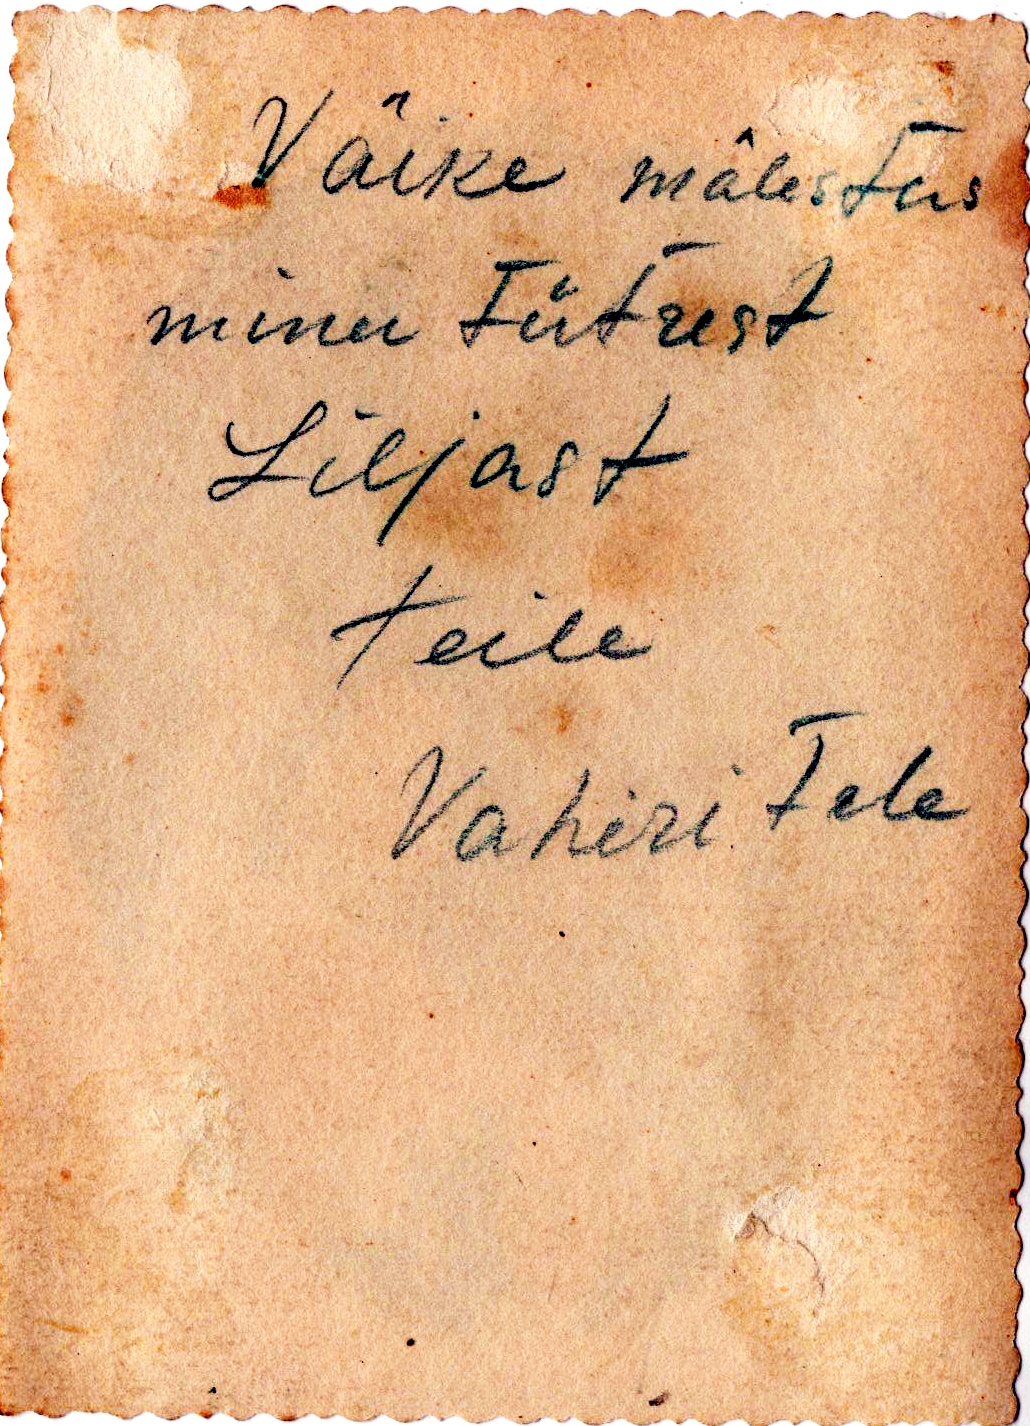 Väike mälestus
minu tütrest
Liljast
teile
Vahiri Tele